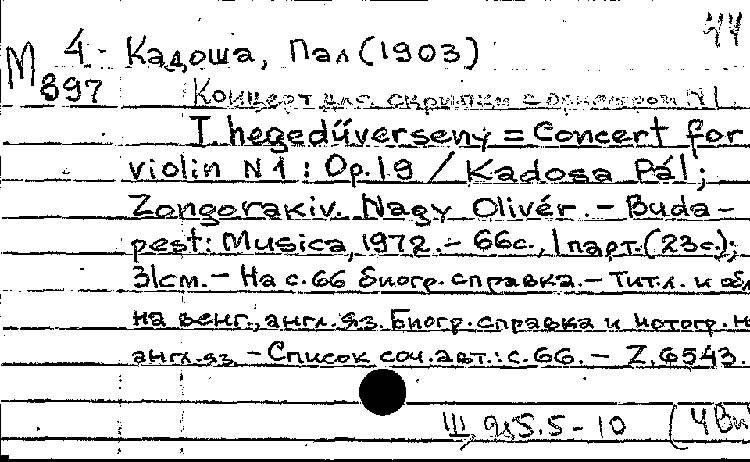 44
М 4- Кадоша, Пал (1903)
897 Концерт для скрипки с оркестром N1.
I. hegedűverseny = Concert for
violin N1: Op.19 / Kadosa Pál;
Zongorakiv. Nagy Olivér. – Buda-
pest: Musica, 1972. – 66с., 1 парт. (23с.);
31cm. – На с.66 биогр. справка. – Тит.л. и обл
на венг., англ. яз. Биогр. справка и нотогр. н
англ. яз. – Список соч. авт.: с.66. – Z.6543.
III, 5.5-10 (4